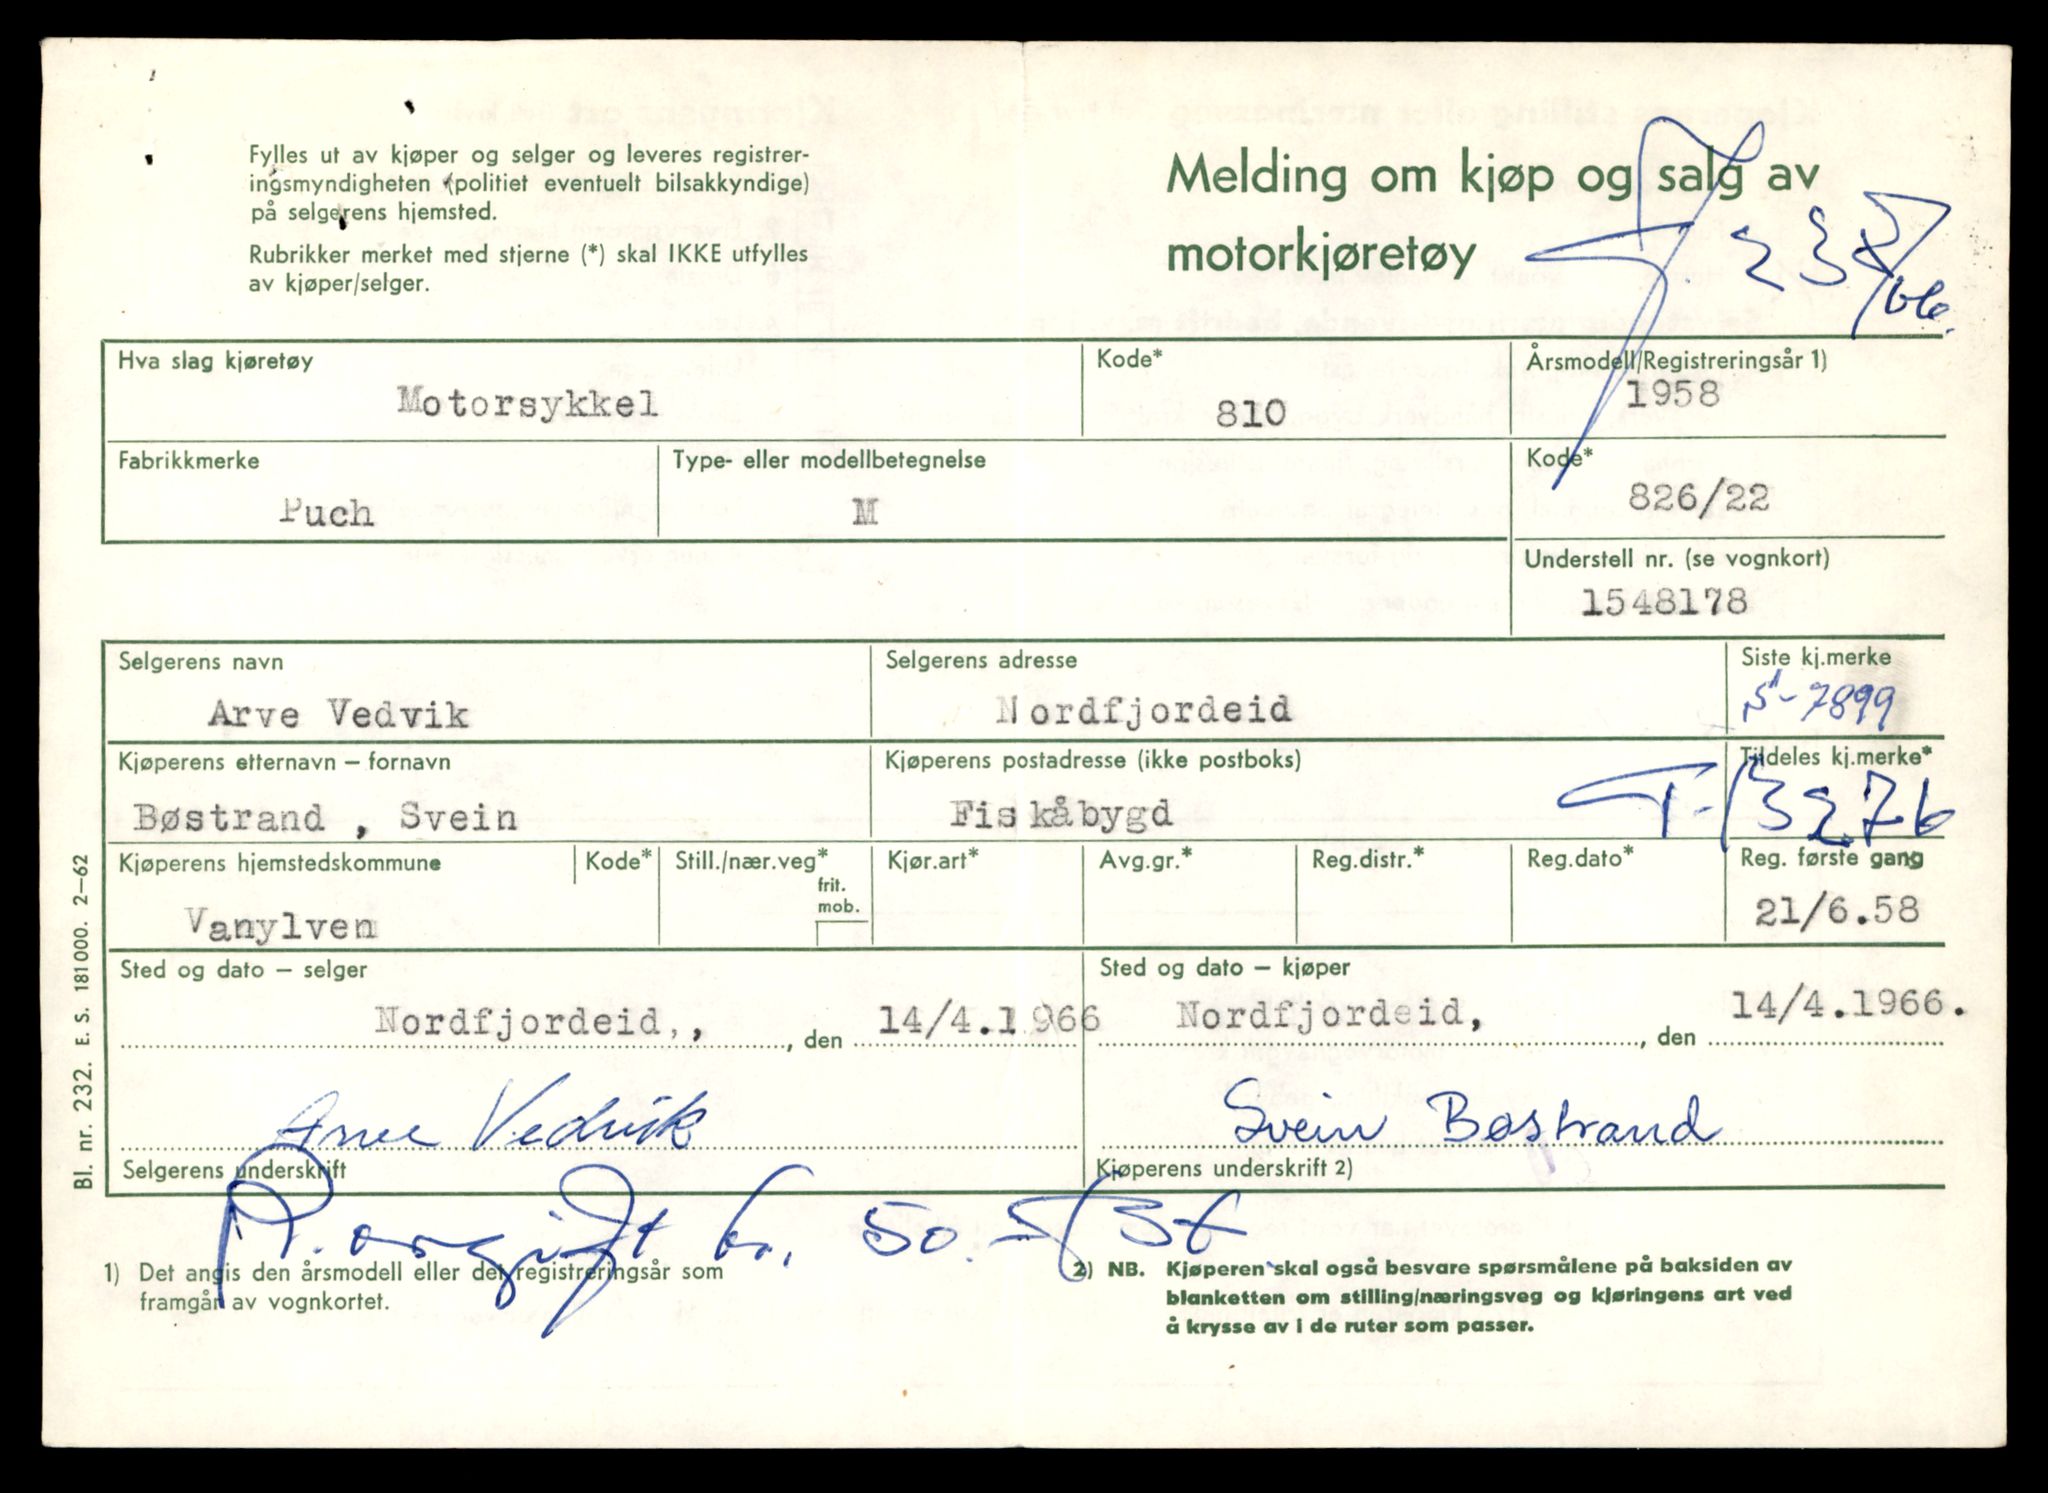 Fylles ut av kjøper og selger og leveres registrer-
ingsmyndigheten (politiet eventuelt bilsakkyndige)
på selgerens hjemsted.
Rubrikker merket med stjerne (*) skal IKKE utfylles
av kjøper/selger.
Melding om kjøp og salg av
motorkjøretøy
Hva slag kjøretøy
Motorsykkel
Kode*
810
Årsmodell/Registreringsår 1)
1958
Fabrikkmerke
Puch
Type- eller modellbetegnelse
M
Kode*
826/22
Understell nr. (se vognkort)
1548178
Selgerens navn
Arve Vedvik
Selgerens adresse
Nordfjordeid
Siste kj.merke
S-7899
Kjøperens etternavn – fornavn
Bøstrand , Svein
Kjøperens postadresse (ikke postboks)
Fiskåbygd
Tildeles kj.merke*
T-13276
Kjøperens hjemstedskommune
Vanylven
Kode*
Still./nær.veg*
frit.
mob.
Kjør.art*
Avg.gr.*
Reg.distr.*
Reg.dato*
Reg. første gang
21/6.58
Sted og dato – selger
Nordfjordeid,, , den 14/4.1966
Sted og dato – kjøper
Nordfjordeid, , den 14/4.1966.
Arve Vedvik
Selgerens underskrift
Svein Bøstrand
Kjøperens underskrift 2)
avgift kr. 50.-
1) Det angis den årsmodell eller det registreringsår som
framgår av vognkortet.
2) NB. Kjøperen skal også besvare spørsmålene på baksiden av
blanketten om stilling/næringsveg og kjøringens art ved
å krysse av i de ruter som passer.
Bl. nr. 232. E. S. 181000. 2–62